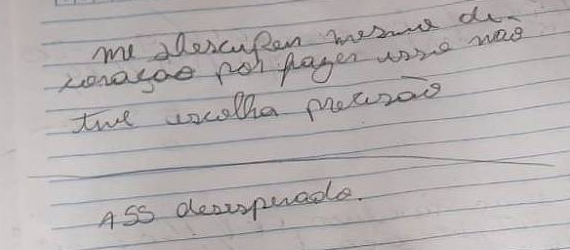 me desculpem mesmo de
coração por fazer isso não
tive escolha precisão
ASS desesperado.